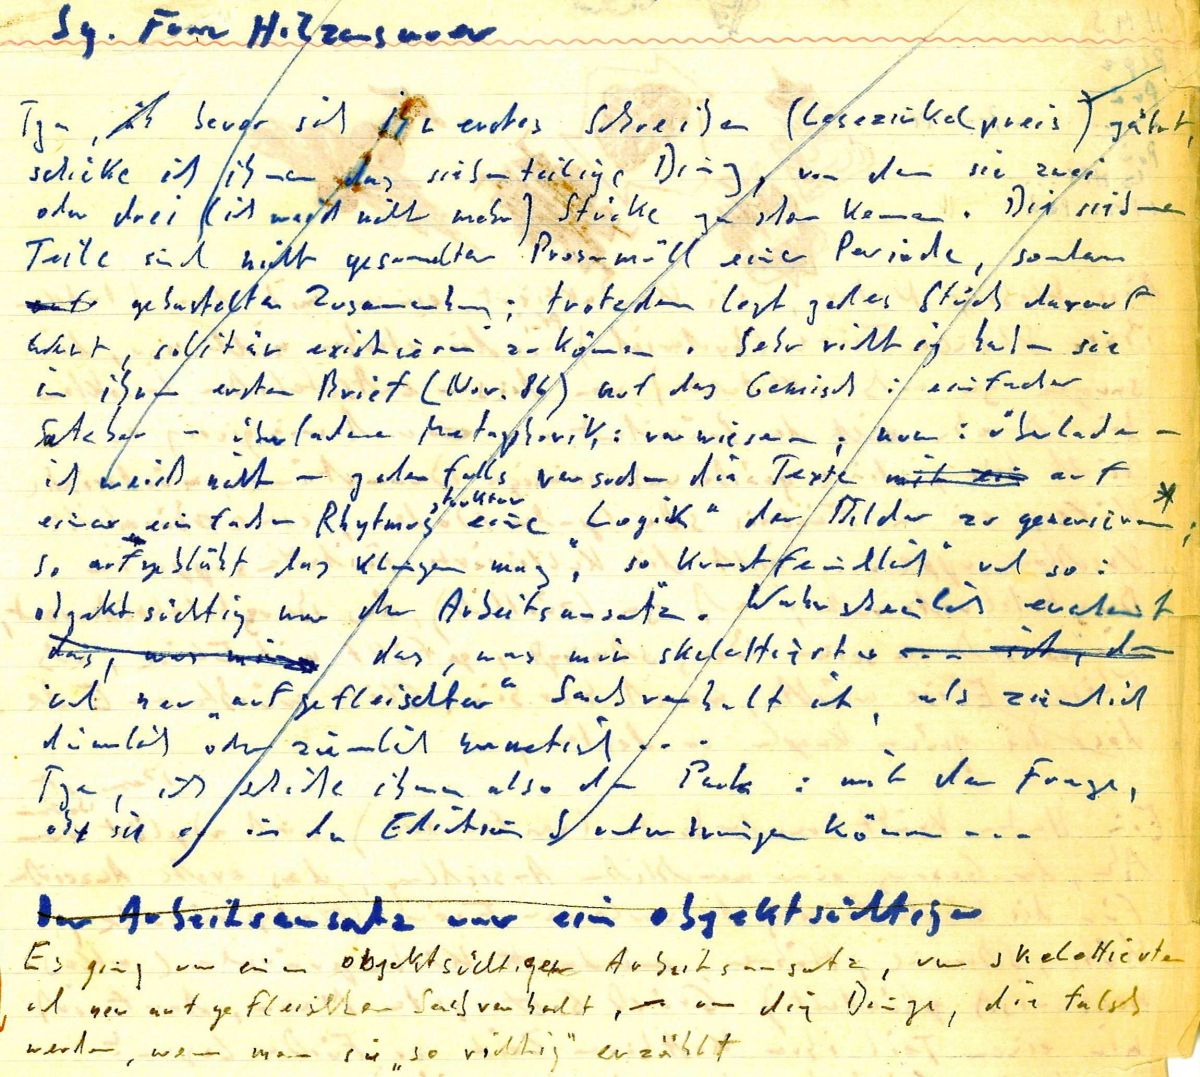 Sg. Frau Holzensauer
Tja, ich bevor sich ihr erstes Schreiben (Lesezirkelpreis) jährt,
schicke ich ihnen das siebenteilige Ding, von dem sie zwei
oder drei (ich weiß nicht mehr) Stücke schon kennen. Die sieben
Teile sind nicht gesammelter Prosamüll einer Periode, sondern
gebastelter Zusammenhang; trotzdem legt jedes Stück darauf
Wert, solitär existieren zu können. Sehr richtig haben sie
in ihrem ersten Brief (Nov. 86) auf das Gemisch: einfacher
Satzbau – überladene Metaphorik: verwiesen; nun: überladen –
ich weiß nicht – jedenfalls versuchen die Texte mit ein auf
einer einfachen Rhytmusstruktur eine "Logik" der Bilder zu generieren*;
so aufgebläht das klingen mag, "so kunstfeindlich" und so:
objektsüchtig war der Arbeitsansatz. Wahrscheinlich erscheint
das, was mir das, was mir skelettierter
und neu "aufgefleischter" Sachverhalt ist, als ziemlich
dümlich oder ziemlich hermetisch ...
Tja, ich schicke ihnen also den Pack: mit der Frage,
ob sie es in der Edition S unterbringen können ...
Der Arbeitsansatz war ein objektsüchtiger
Es ging um einen objektsüchtigen Arbeitsansatz, um skelettierten
und neu aufgefleischten Sachverhalt, – um die Dinge, die falsch
werden, wenn man sie "so richtig" erzählt